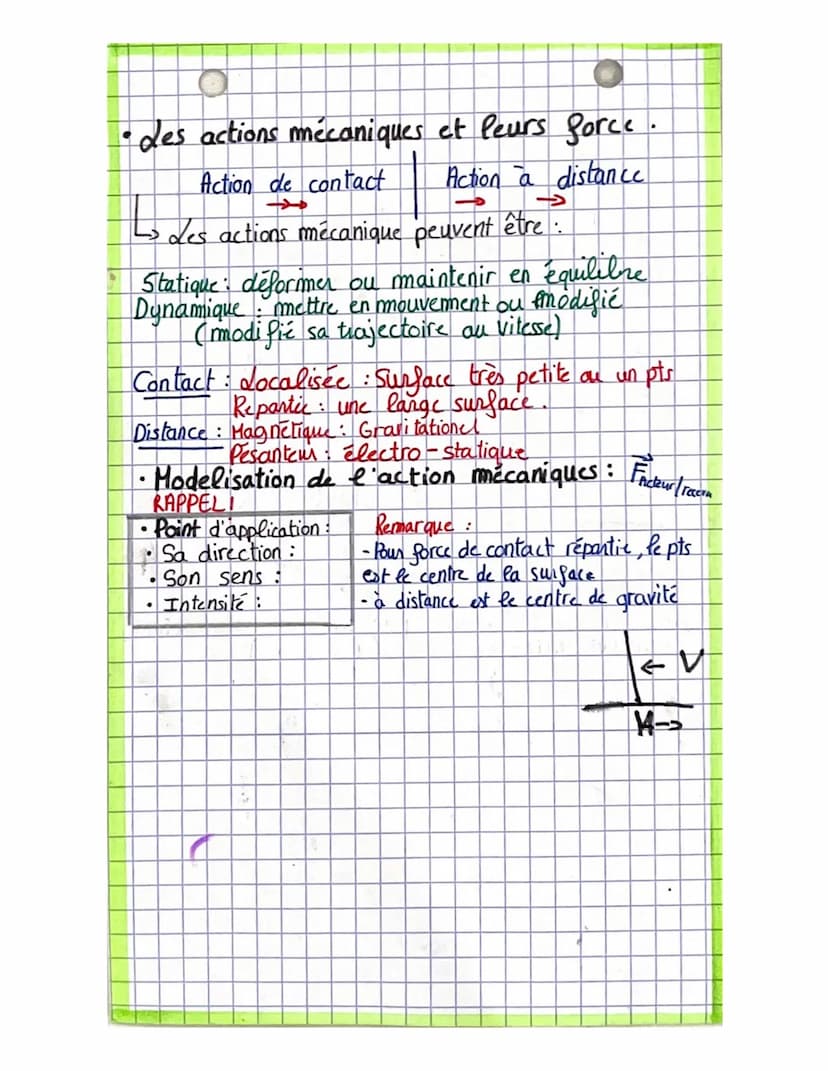 • Les actions mécaniques et leurs force.
Action de contact | Action à distance
↳ Les actions mécanique peuvent être :
Statique : déformer ou maintenir en équilibre
Dynamique : mettre en mouvement ou modifié
(modifié sa trajectoire ou vitesse)
Contact : Localisée : Surface très petite ou un pts
Repartie : une large surface.
Distance : Magnétique : Gravitationel
Pesanteur : électro-statique
• Modelisation de l'action mécaniques : F
RAPPEL!
• Point d'application :
• Sa direction :
• Son sens :
• Intensité :
Remarque :
- Pour force de contact répartie, le pts
est le centre de la surface
- à distance est le centre de gravité
← V
H→